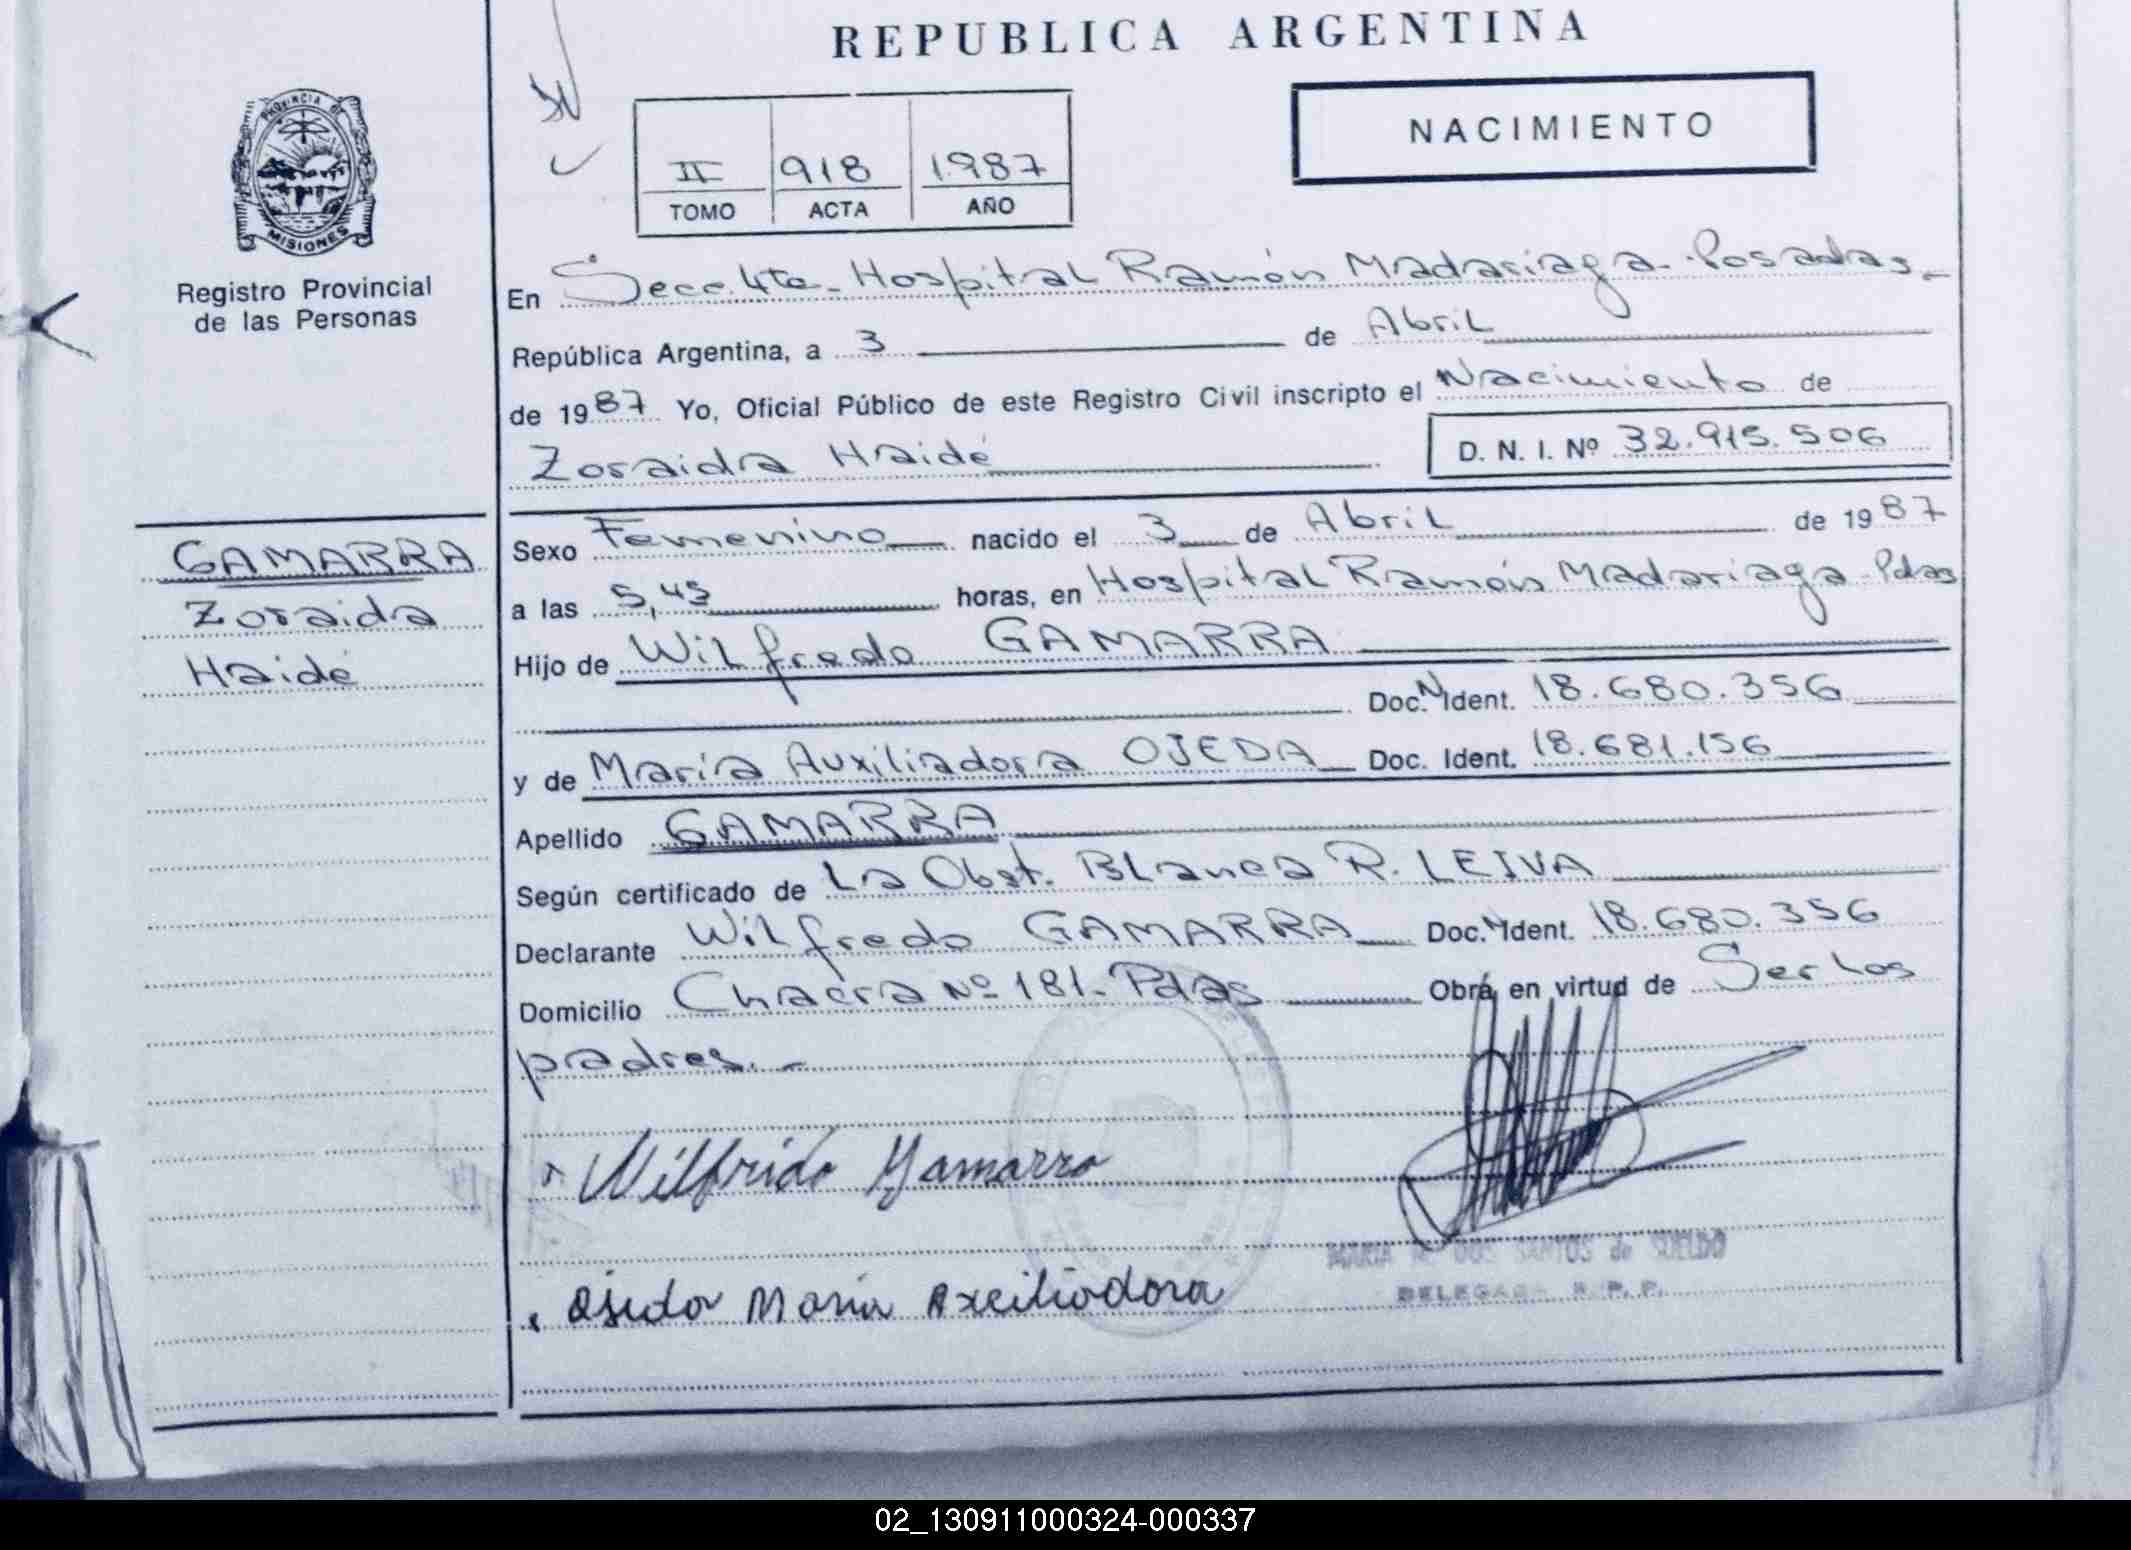 REPUBLICA ARGENTINA
NACIMIENTO
II 918 1987
TOMO ACTA AÑO
PROVINCIA DE
MISIONES
Registro Provincial
de las Personas
En Secc. 4ta - Hospital Ramón Madariaga - Posadas -
República Argentina, a 3 de Abril
de 1987 Yo, Oficial Público de este Registro Civil inscripto el Nacimiento de
Zoraida Haidé D. N. I. Nº 32.915.506
GAMARRA
Zoraida
Haidé
Sexo Femenino nacido el 3 de Abril de 1987
a las 5,45 horas, en Hospital Ramón Madariaga - Pdas
Hijo de Wilfredo GAMARRA
Doc. N Ident. 18.680.356
y de María Auxiliadora OJEDA Doc. Ident. 18.681.156
Apellido GAMARRA
Según certificado de La Obst. Blanca R. LEIVA
Declarante Wilfredo GAMARRA Doc. N Ident. 18.680.356
Domicilio Chacra Nº 181 - Pdas Obrá en virtud de Ser los
padres. -
Wilfrido Gamarra
MARIA DOS SANTOS de SUELDO
DELEGADA R. P. P.
Ojeda Maria Axciliadora
02_130911000324-000337